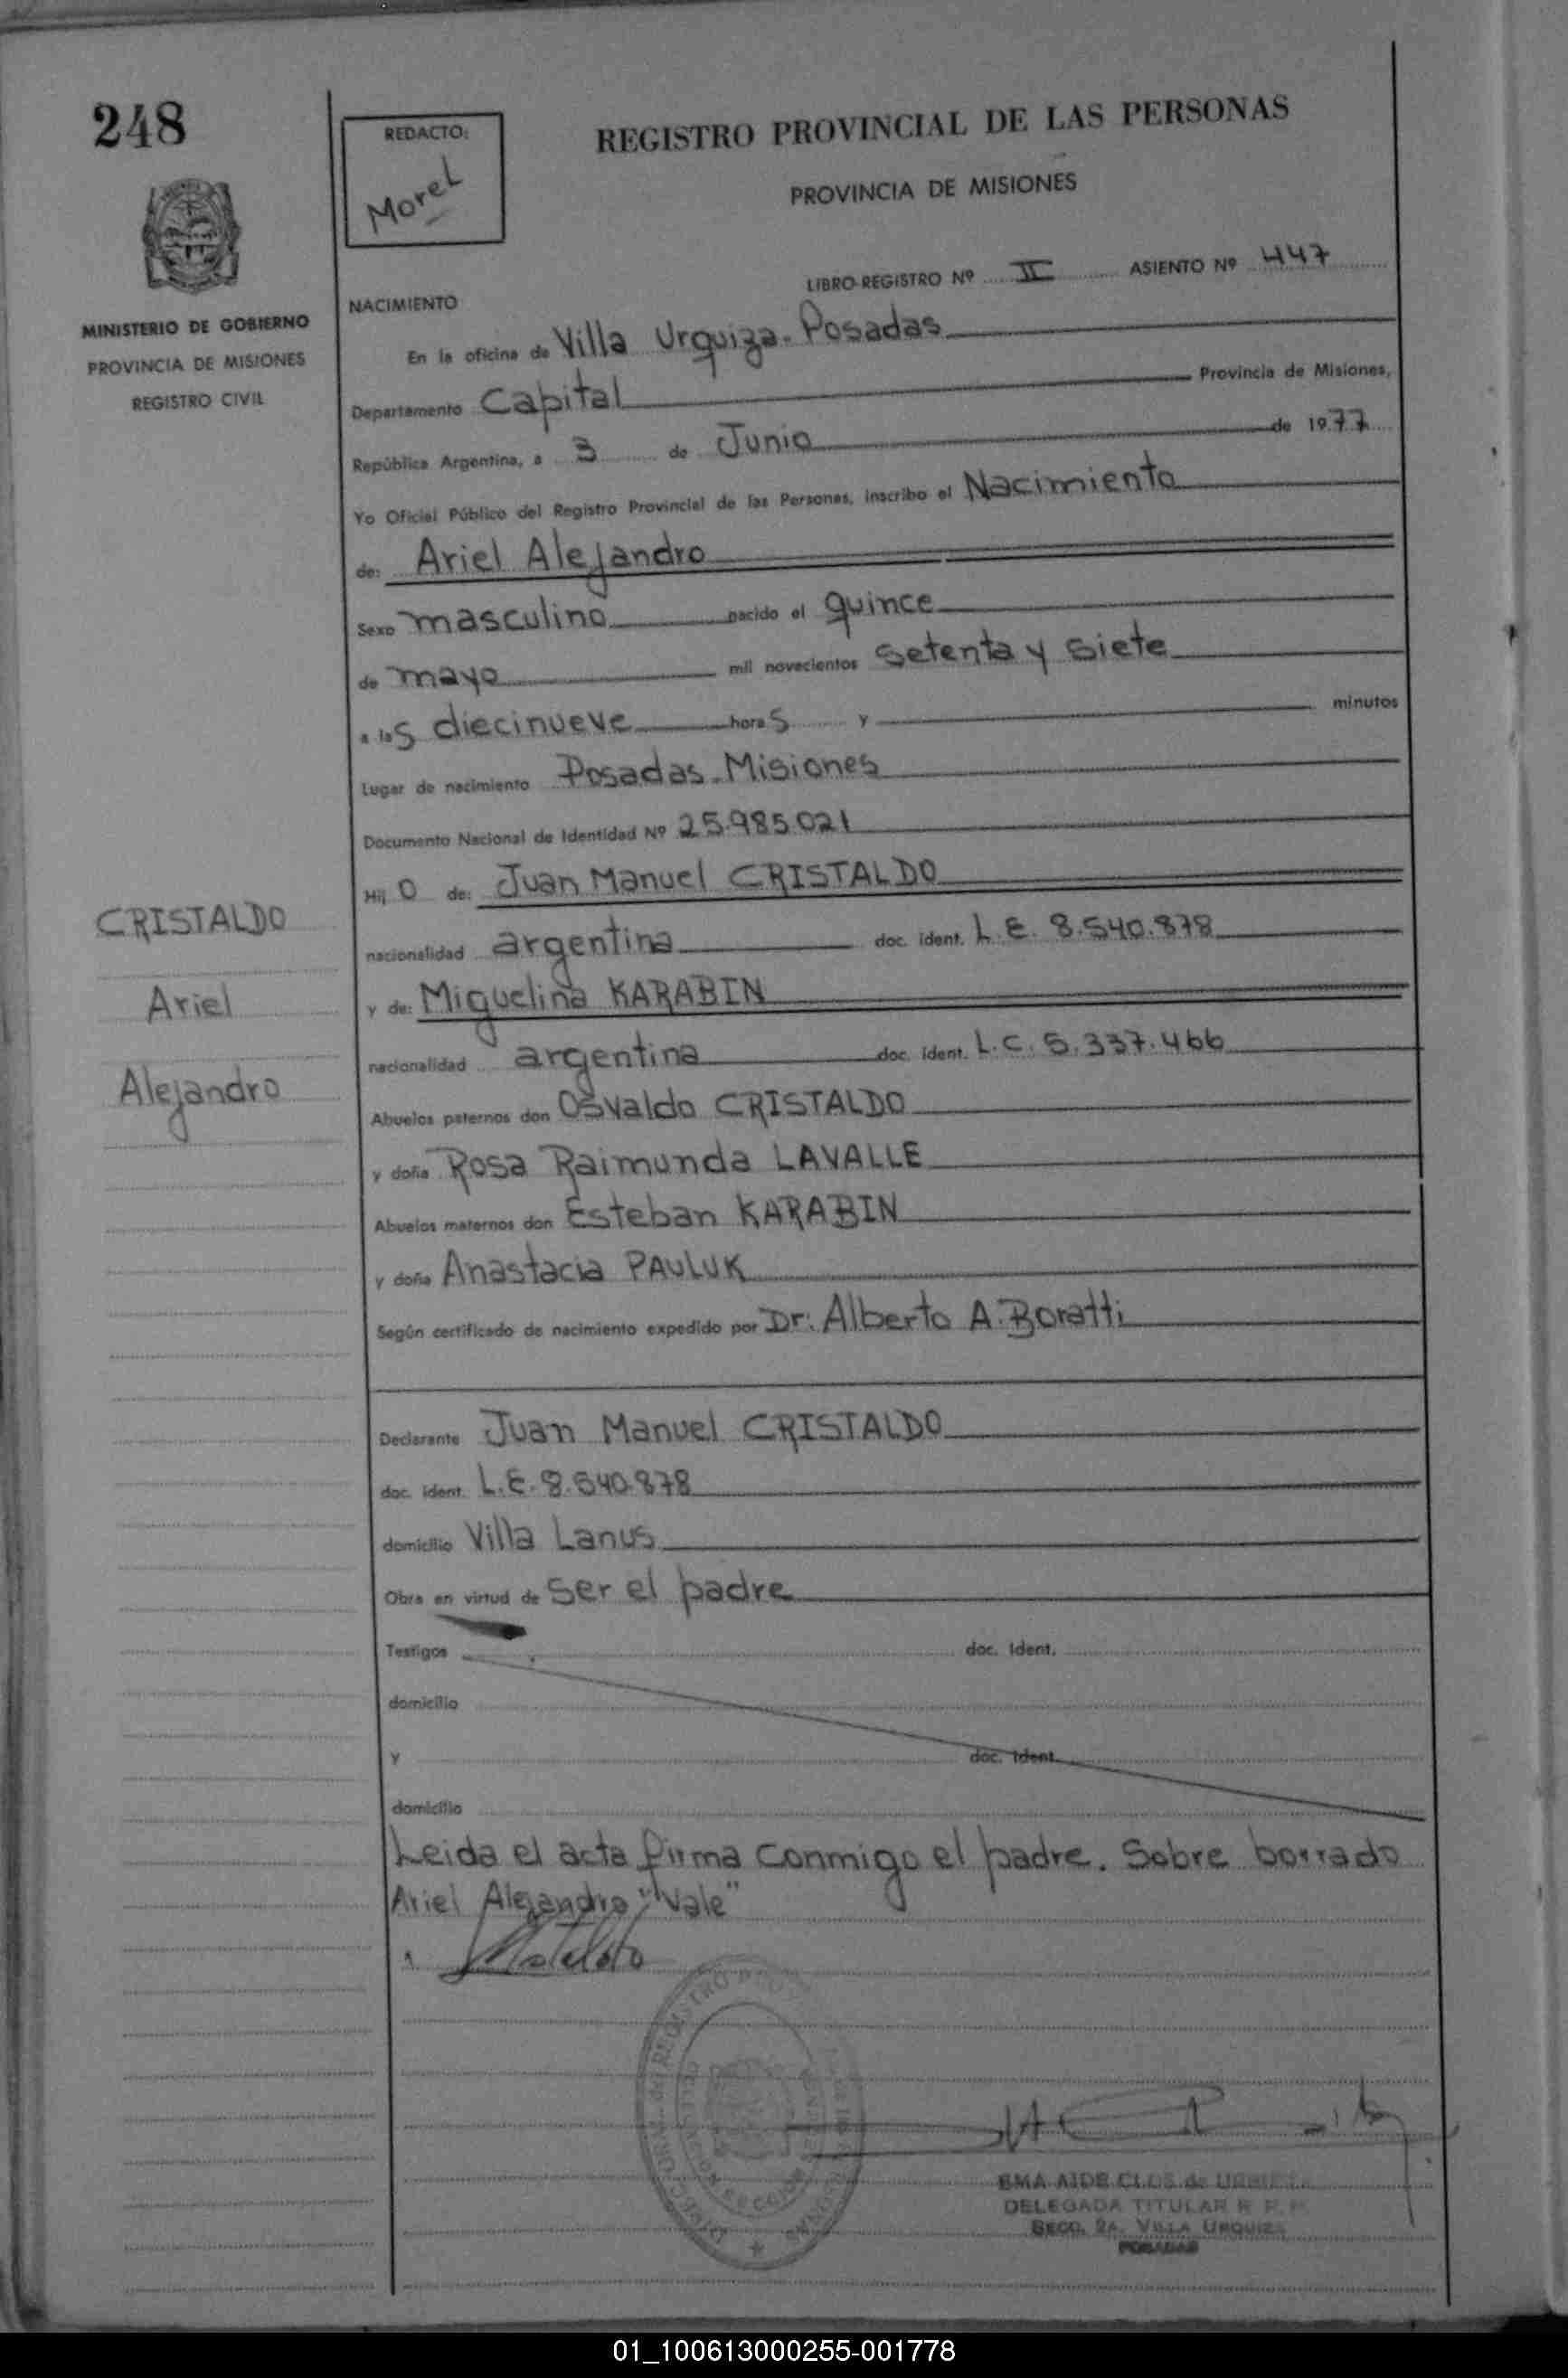 248
REDACTO:
Morel
REGISTRO PROVINCIAL DE LAS PERSONAS
PROVINCIA DE MISIONES
LIBRO-REGISTRO Nº II ASIENTO Nº 447
MINISTERIO DE GOBIERNO
PROVINCIA DE MISIONES
REGISTRO CIVIL
NACIMIENTO
En la oficina de Villa Urquiza. Posadas
Departamento Capital Provincia de Misiones,
República Argentina, a 3 de Junio de 1977
Yo Oficial Público del Registro Provincial de las Personas, inscribo el Nacimiento
de: Ariel Alejandro
Sexo masculino nacido el quince
de mayo mil novecientos setenta y siete
a las diecinueve horas y minutos
Lugar de nacimiento Posadas-Misiones
Documento Nacional de Identidad Nº 25.985.021
Hijo de: Juan Manuel CRISTALDO
nacionalidad argentina doc. ident. L.E. 8.540.878
y de: Miguelina KARABIN
nacionalidad argentina doc. ident. L.C. 5.337.466
Abuelos paternos don Osvaldo CRISTALDO
y doña Rosa Raimunda LAVALLE
Abuelos maternos don Esteban KARABIN
y doña Anastacia PAULUK
Según certificado de nacimiento expedido por Dr: Alberto A. Boratti
Declarante Juan Manuel CRISTALDO
doc. ident. L.E. 8.540.878
domicilio Villa Lanus
Obra en virtud de ser el padre
Testigos doc. ident.
domicilio
y doc. ident.
domicilio
Leida el acta firma conmigo el padre. Sobre borrado
Ariel Alejandro "Vale"
CRISTALDO
Ariel
Alejandro
EMA AIDE CLOS de
DELEGADA TITULAR R. P.
SECC. 2A. VILLA URQUIZA
POSADAS
01_100613000255-001778